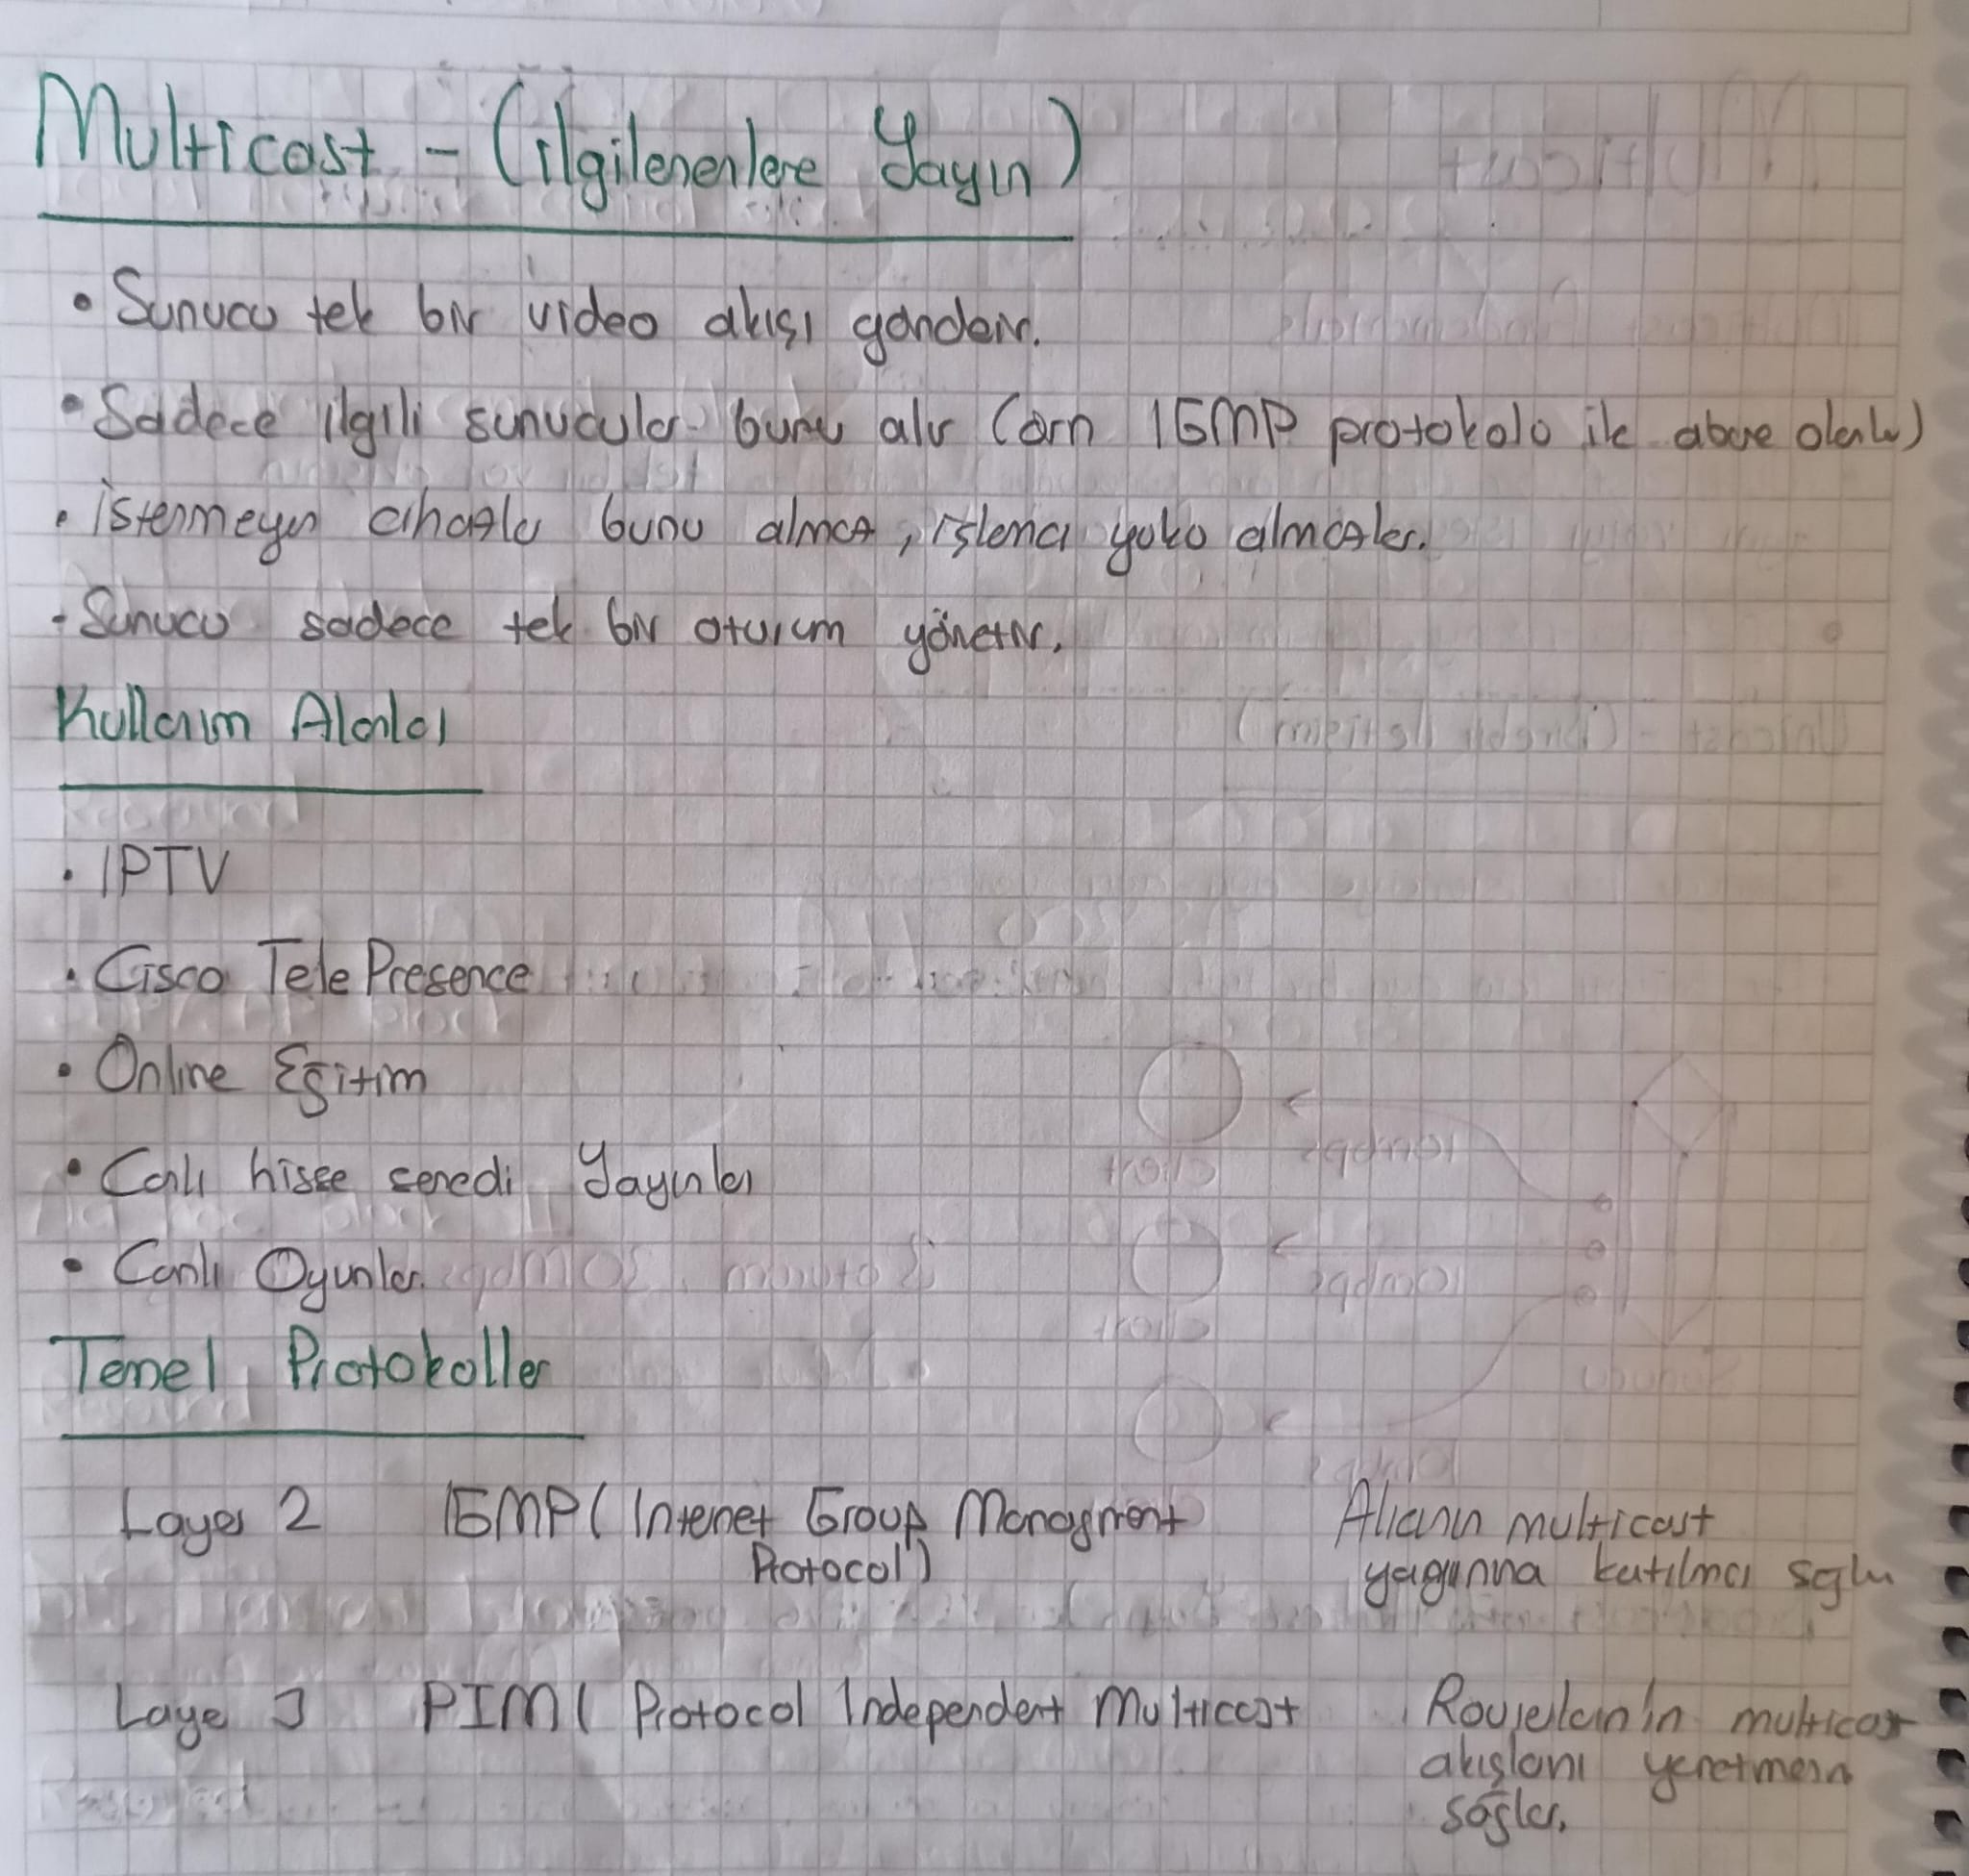 Multicast - (ilgilenenlere Yayın)
• Sunucu tek bir video akışı gönderir.
• Sadece ilgili sunucular bunu alır (örn IGMP protokolü ile abone olanlar)
• İstenmeyen cihazlar bunu almaz, işlemci yükü almazlar.
- Sunucu sadece tek bir oturum yönetir.
Kullanım Alanları
• IPTV
• Cisco TelePresence
• Online Eğitim
• Canlı hisse senedi Yayınları
• Canlı Oyunlar
Temel Protokoller
Layer 2 IGMP (Internet Group Managment Protocol) Alıcının multicast
yayınına katılmayı sağlar
Layer 3 PIM( Protocol Independent Multicast Routerların'ın multicast
akışlarını yönetmesini
sağlar.